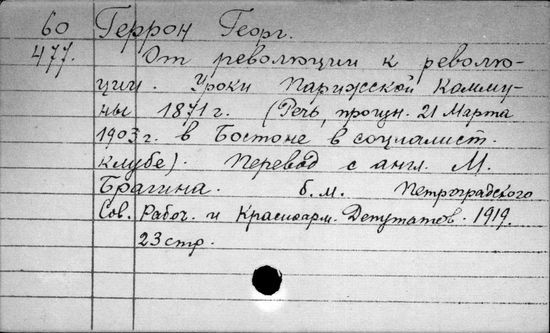 60 Геррон Георг.
477. От революции к револю-
ции. Уроки Парижской Комму-
ны 1871 г. (Речь, произн. 21 Марта
1903 г. в Бостоне в социалист.
клубе). Перевод с англ. М.
Брагина. б.м. Петроградского
Сов. Рабоч. и Красноарм. Депутатов. 1919.
23 стр.